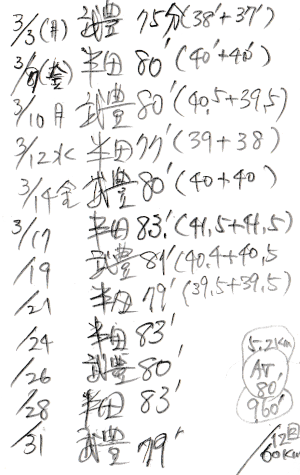 3/3(月) 武豊 75分(38'+37')
3/7(金) 半田 80'(40'+40')
3/10月 武豊 80'(40.5+39.5)
3/12水 半田 77'(39+38)
3/14金 武豊 80'(40+40)
3/17 半田 83'(41.5+41.5)
/19 武豊 81'(40.4+40.5
/21 半田 79'(39.5+39.5)
/24 半田 83'
/26 武豊 80'
/28 半田 83'
/31 武豊 79'
5.2km
AV
80'
960'
12回
/60km